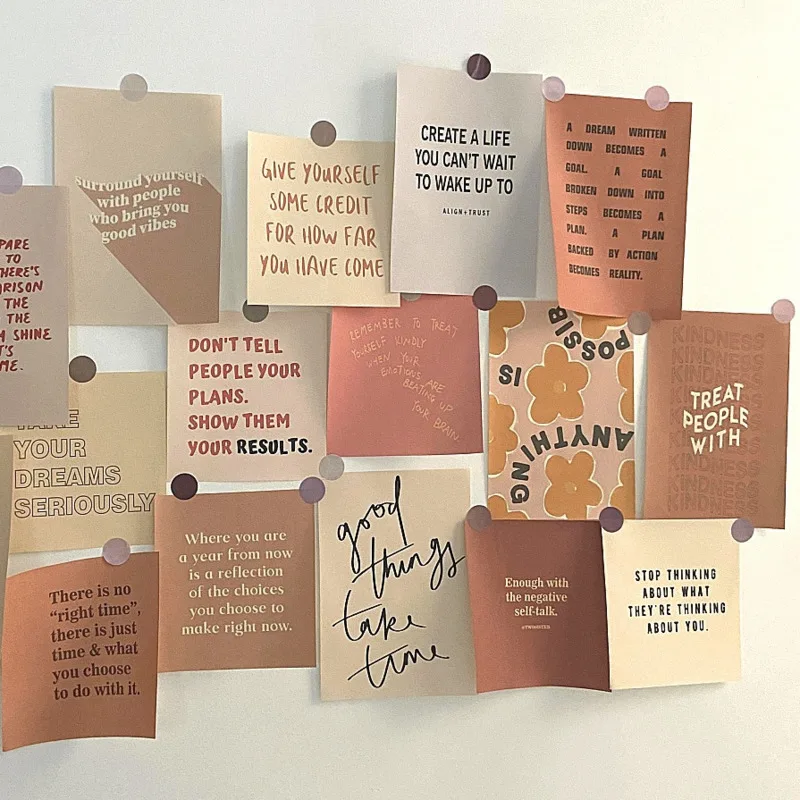 surround yourself
with people
who bring you
good vibes
GIVE YOURSELF
SOME CREDIT
FOR HOW FAR
YOU HAVE COME
CREATE A LIFE
YOU CAN'T WAIT
TO WAKE UP TO
ALIGN+TRUST
A DREAM WRITTEN
DOWN BECOMES A
GOAL. A GOAL
BROKEN DOWN INTO
STEPS BECOMES A
PLAN. A PLAN
BACKED BY ACTION
BECOMES REALITY.
TO
THE
THE
SHINE
ME.
DON'T TELL
PEOPLE YOUR
PLANS.
SHOW THEM
YOUR RESULTS.
REMEMBER TO TREAT
YOURSELF KINDLY
WHEN YOUR
EMOTIONS ARE
BEATING UP
YOUR BRAIN
ANYTHING
IS
KINDNESS
KINDNESS
KINDNESS
KINDNESS
TREAT
PEOPLE
WITH
KINDNESS
KINDNESS
KINDNESS
KINDNESS
TAKE
YOUR
DREAMS
SERIOUSLY
There is no
"right time",
there is just
time & what
you choose
to do with it.
Where you are
a year from now
is a reflection
of the choices
you choose to
make right now.
good
things
take
time
Enough with
the negative
self-talk.
STOP THINKING
ABOUT WHAT
THEY'RE THINKING
ABOUT YOU.